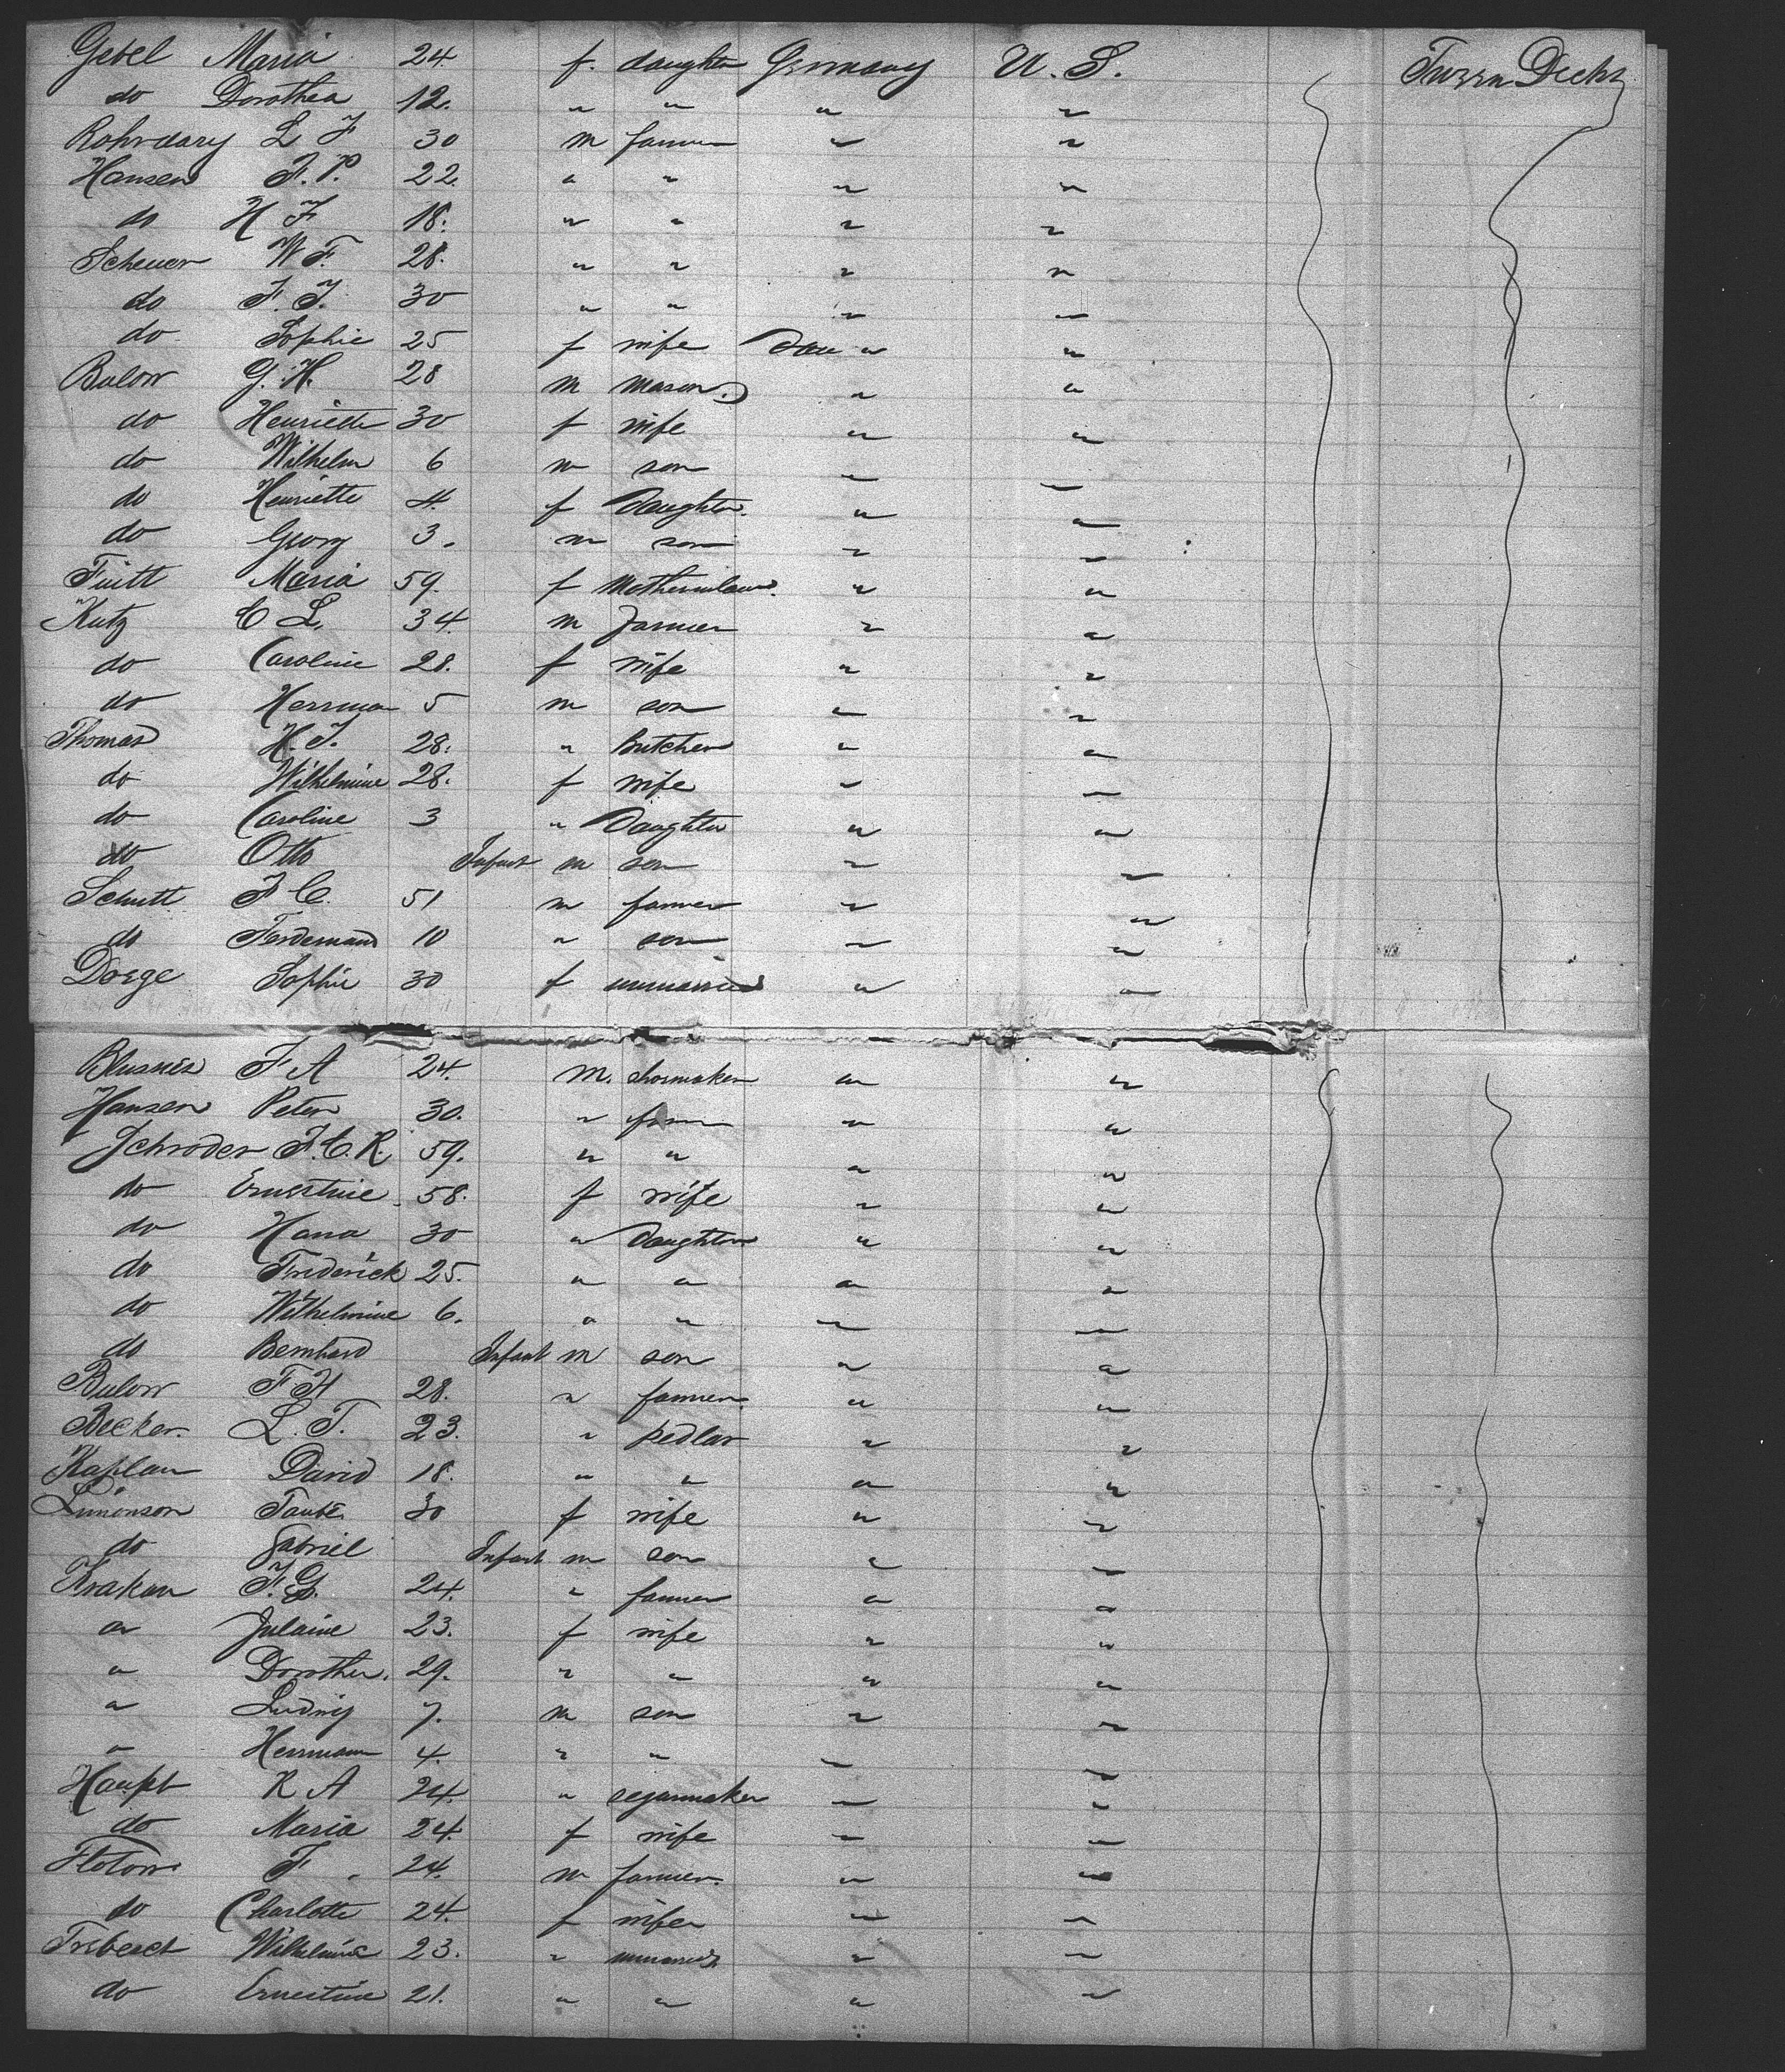 Gebel Maria 24 f. daughter Germany U. S. Tween Decks
do Dorothea 12. " " " "
L F 30 m farmer " "
Hansen F. P. 22. " " " "
do H F 18. " " " "
Scheuer W F. 28. " " " "
do F. F. 30 " " " "
do Sophie 25 f wife " "
Bulow G. H. 28 m mason. " "
do Henriette 30 f wife " "
do Wilhelm 6 m son " "
do Henriette 4. f Daughter. " "
do Georg 3. m son " "
Maria 59. f Motherinlaw. " "
Kutz C L. 34. m Farmer " "
do Caroline 28. f wife " "
do Herrman 5 m son " "
Thomas H. F. 28. " Butcher " "
do Wilhelmine 28. f wife " "
do Caroline 3 " Daughter " "
do Otto Infant m son " "
Schutt F C. 51 m farmer " "
do Ferdernand 10 " son " "
Dorge Sophie 30 f unmarried " "
F A 24. m. shoemaker " "
Hansen Peter 30. " farmer " "
Schroder F. C. R. 59. " " " "
do Ernestine 58. f wife " "
do Hana 30 " Daughter " "
do Frederick 25. " " " "
do Wilhelmine 6. " " " "
do Bernhard Infant m son " "
Bulow F H 28. " farmer. " "
Becker. L. T. 23. " pedlar " "
Kaplan David 18. " " " "
Simonson Taube. 30 f wife " "
do Gabriel Infant m son " "
Krakow F. G. 24. " farmer " "
" Julaine 23. f wife " "
" Dorothea. 29. " " " "
" Ludwig 7. m son " "
" Herrmann 4. " " " "
Haupt R A 24. " segarmaker " "
do Maria 24. f wife " "
Flotow F. 24. m farmer. " "
do Charlotte 24. f wife " "
Wilhelmine 23. " unmarried. " "
do Ernestine 21. " " " "